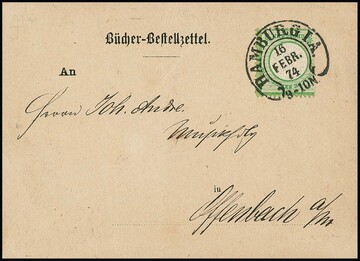 Bücher-Bestellzettel.
HAMBURG I.A.
16
FEBR.
74
9-10N
An
Herrn Joh. Andre.
in
Offenbach a/m